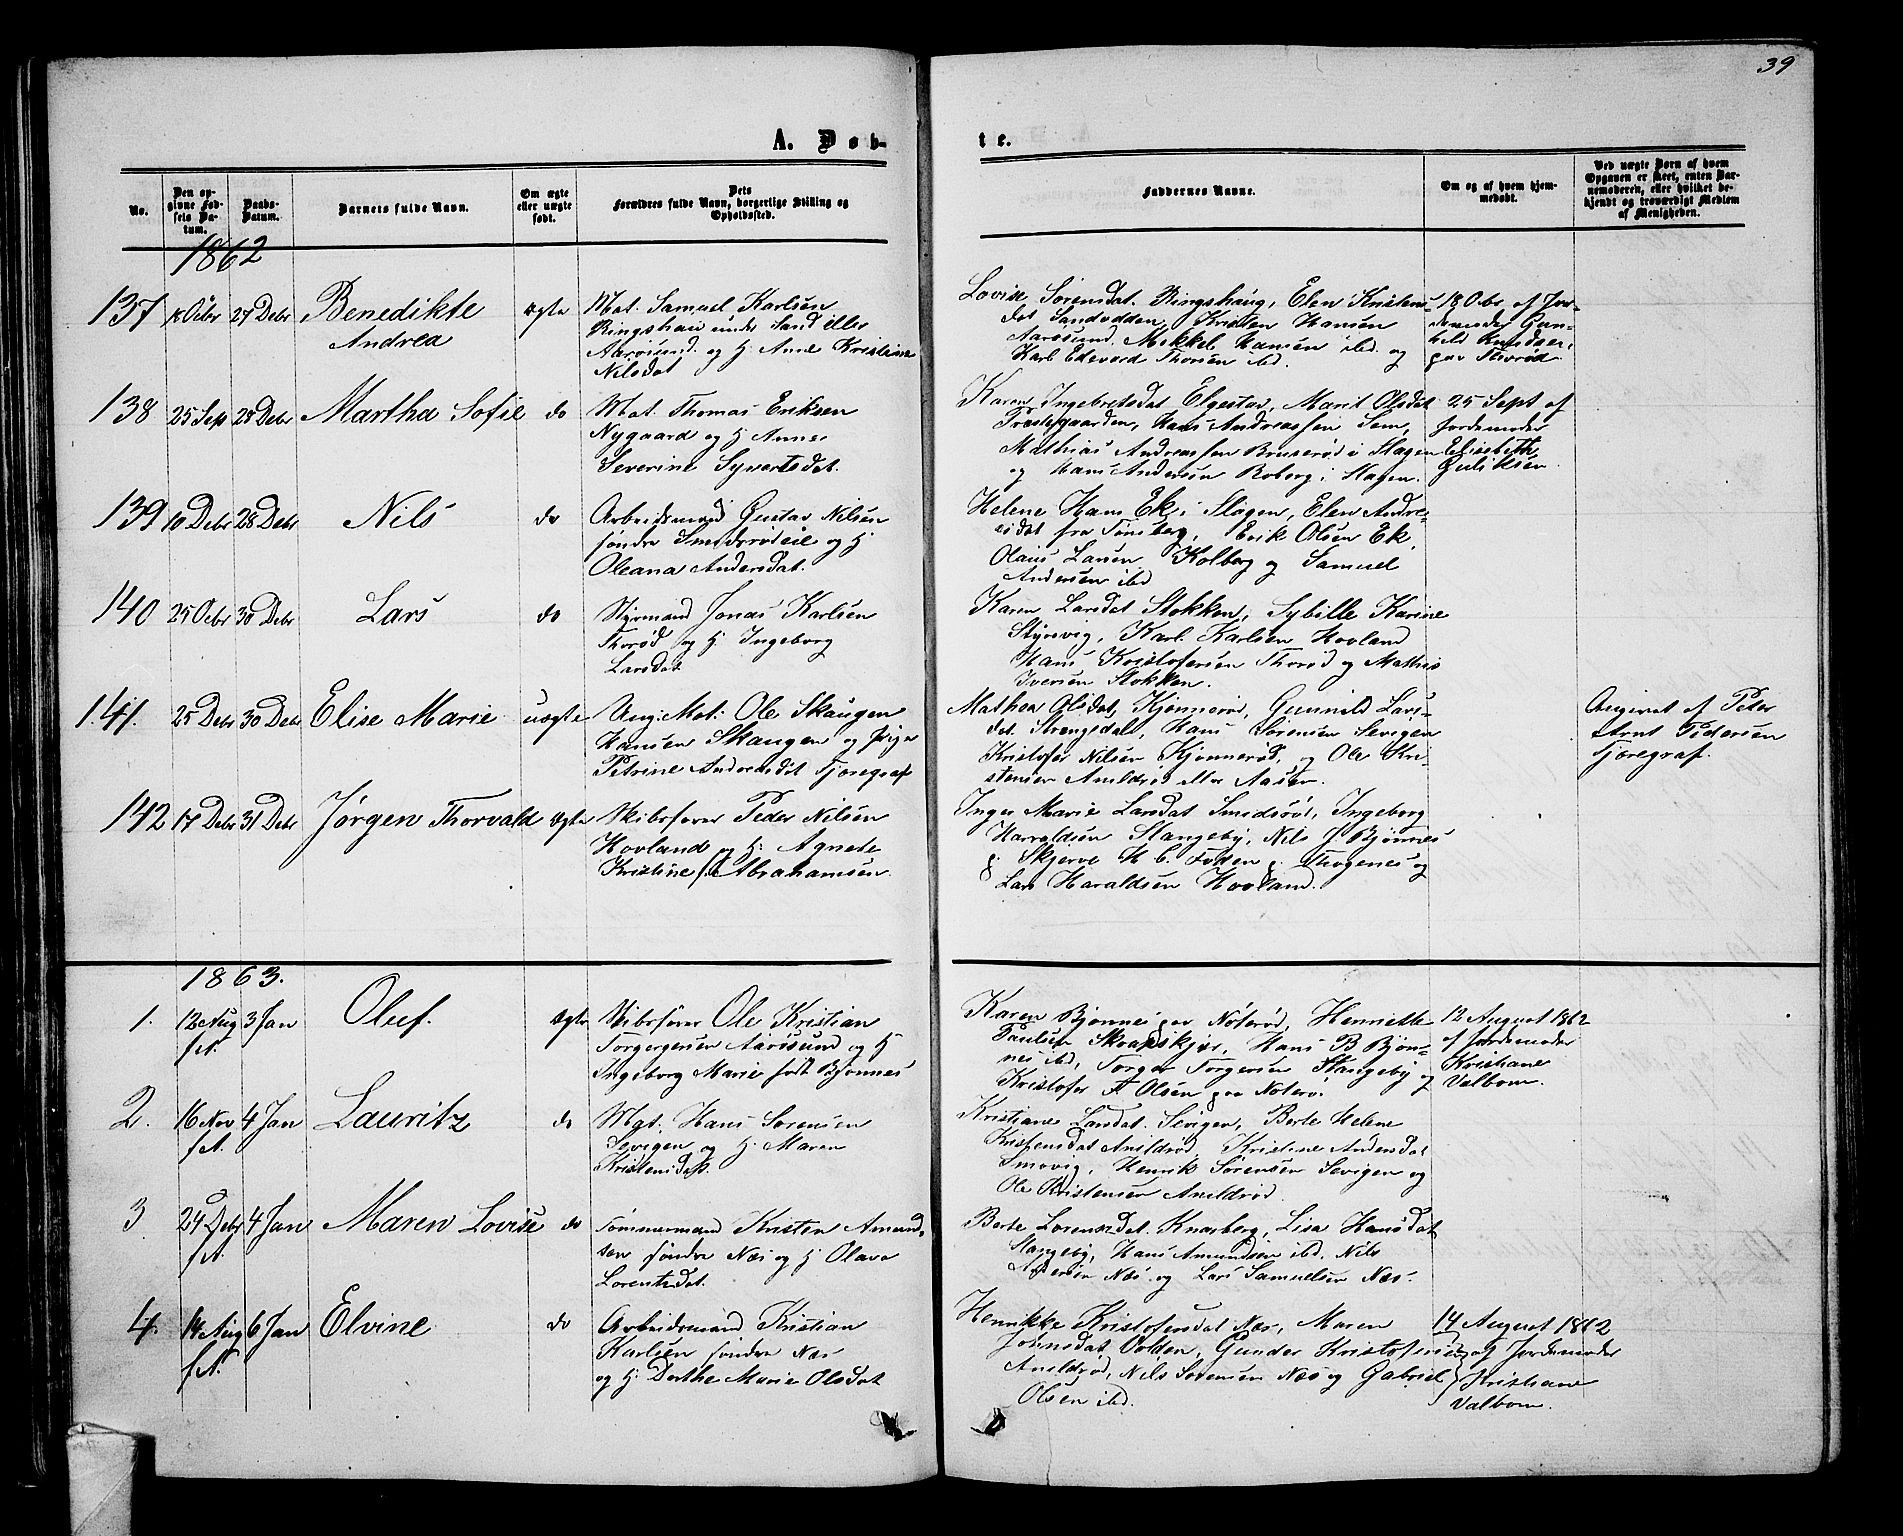 39
A. Døb-
te.
No.
Den op-
givne Fød-
sels Da-
tum.
Daabs-
Datum.
Barnets fulde Navn.
Om ægte
eller uægte
født.
Dets
Forældres fulde Navn, borgerlige Stilling og
Opholdssted.
Faddernes Navne.
Om og af hvem hjem-
medøbt.
Ved uægte Børn af hvem
Opgaven er skeet, enten Bar-
nemoderen, eller hvilket be-
kjendt og troværdigt Medlem
af Menigheden.
1862
137 18 Octbr 27 Debr Benedikte
Andrea
ægte
Mat. Samuel Karlsen
Ringshau under Sand eller
Aarøsund. og H. Anne Kristine
Nilsdat
Lovise Sørensdat. Ringshaug, Elen Kristens-
dat Sandvdden, Kristen Hansen
Aarøsund. Mikkel Hansen ibd. og
Karl Edevard Thorsen ibd.
18 Octbr. af Jor-
demoder Gun-
hild Knudsen
paa Thorød
138 25 Sep 28 Debr Martha Sofie do
Mat. Thomas Eriksen
Nygaard og H. Anne
Severine Syvertsdat.
Karen Ingebretsdat Elgestad, Marit Olsdat
Præstegaarden, Hans Andreassen Sem,
Mathias Andreassen Bruserød i Slagen
og Hans Andersen Roberg i Slagen.
25 Sept af
Jordemoder
Elisabeth
Guliksen.
139 10 Debr 28 Debr Nils do
Arbeidsmand Gustav Nilsen
søndre Smidsrødeie og H.
Oleana Andersdat.
Helene Hans Ek i Slagen, Elen Andre-
asdat fra Tønsberg, Erik Olsen Ek,
Olaus Larsen Kolberg og Samuel
Andersen ibd
140 25 Octbr 30 Debr Lars do
Styrmand Jonas Karlsen
Thorød og H. Ingeborg
Larsdat
Karen Larsdat Stokken, Sybille Karine
Styrsvig, Karl Karlsen Hovland
Hans Kristofersen Thorød og Mathis
Iversen Stokken.
141. 25 Debr 30 Debr Elise Marie uægte
Ung. Mat. Ole Skaugen
Hansen Skaugen og Pige
Petrine Andreasdat Tjøregraf
Mathea Olsdat, Kjønnerød, Gunnild Lars-
dat. Strengsdal, Hans Sørensen Sevigen
Kristofer Nilsen Kjønnerød, og Ole Kri-
stensen Anildrød eller Aasen.
Angivet af Peter
Arnt Pedersen
Tjøregraf.
142 17 Debr 31 Debr Jørgen Thorvald ægte
Skibsfører Peder Nilsen
Hovland og H. Agnete
Kristine Abrahamsen.
Inger Marie Larsdat Smidsrød, Ingeborg
Harraldsen Stangeby, Nils J Bjønnes
p. Skjerve H C. Foden p. Thogenes og
Lars Haraldsen Hovland.
1863.
1. 12 Aug 3 Jan Oluf. ægte
f A.
Skibsfører Ole Kristian
Torgersen Aarøsund og H
Ingeborg Marie født Bjønnes
Karen Bjønnes paa Nøterø, Henriette
Paulsen Skrænskjær, Hans B Bjøn-
nes ibd, Torger Torgersen Stangeby og
Kristofer A Olsen paa Nøterø.
12 August 1862
af Jordemoder
Kristiane
Valbom.
2. 16 Nov 4 Jan Lauritz do
f A.
Mat. Hans Sørensen
Sevigen og H. Maren
Kristensdat.
Kristiane Larsdat Sevigen, Berte Helene
Kristensdat Anildrød, Kristine Andersdat
Smovig, Henrik Sørensen Sevigen og
Ole Kristensen Anildrød.
3 24 Debr 4 Jan Maren Lovise do
f A.
Tømmermand Kristen Amund-
sen søndre Næs og H Olava
Lorentsdat.
Berte Lorensdat. Knarberg, Lisa Hansdat
Stangeby, Hans Amundsen ibd. Nils
Andersen Næs og Lars Samuelsen Næs.
4. 14 Aug 6 Jan Elvine do
f A.
Arbeidsmand Kristian
Karlsen søndre Næs
og H. Dorthe Marie Olsdat
Henrikke Kristofersdat Næs, Maren
Johnsdat Volden, Gunder Kristofersen
Anildrød, Nils Sørensen Næs og Gabriel
Olsen ibd.
14 August 1862
og Jordemoder
Kristiane
Valbom.